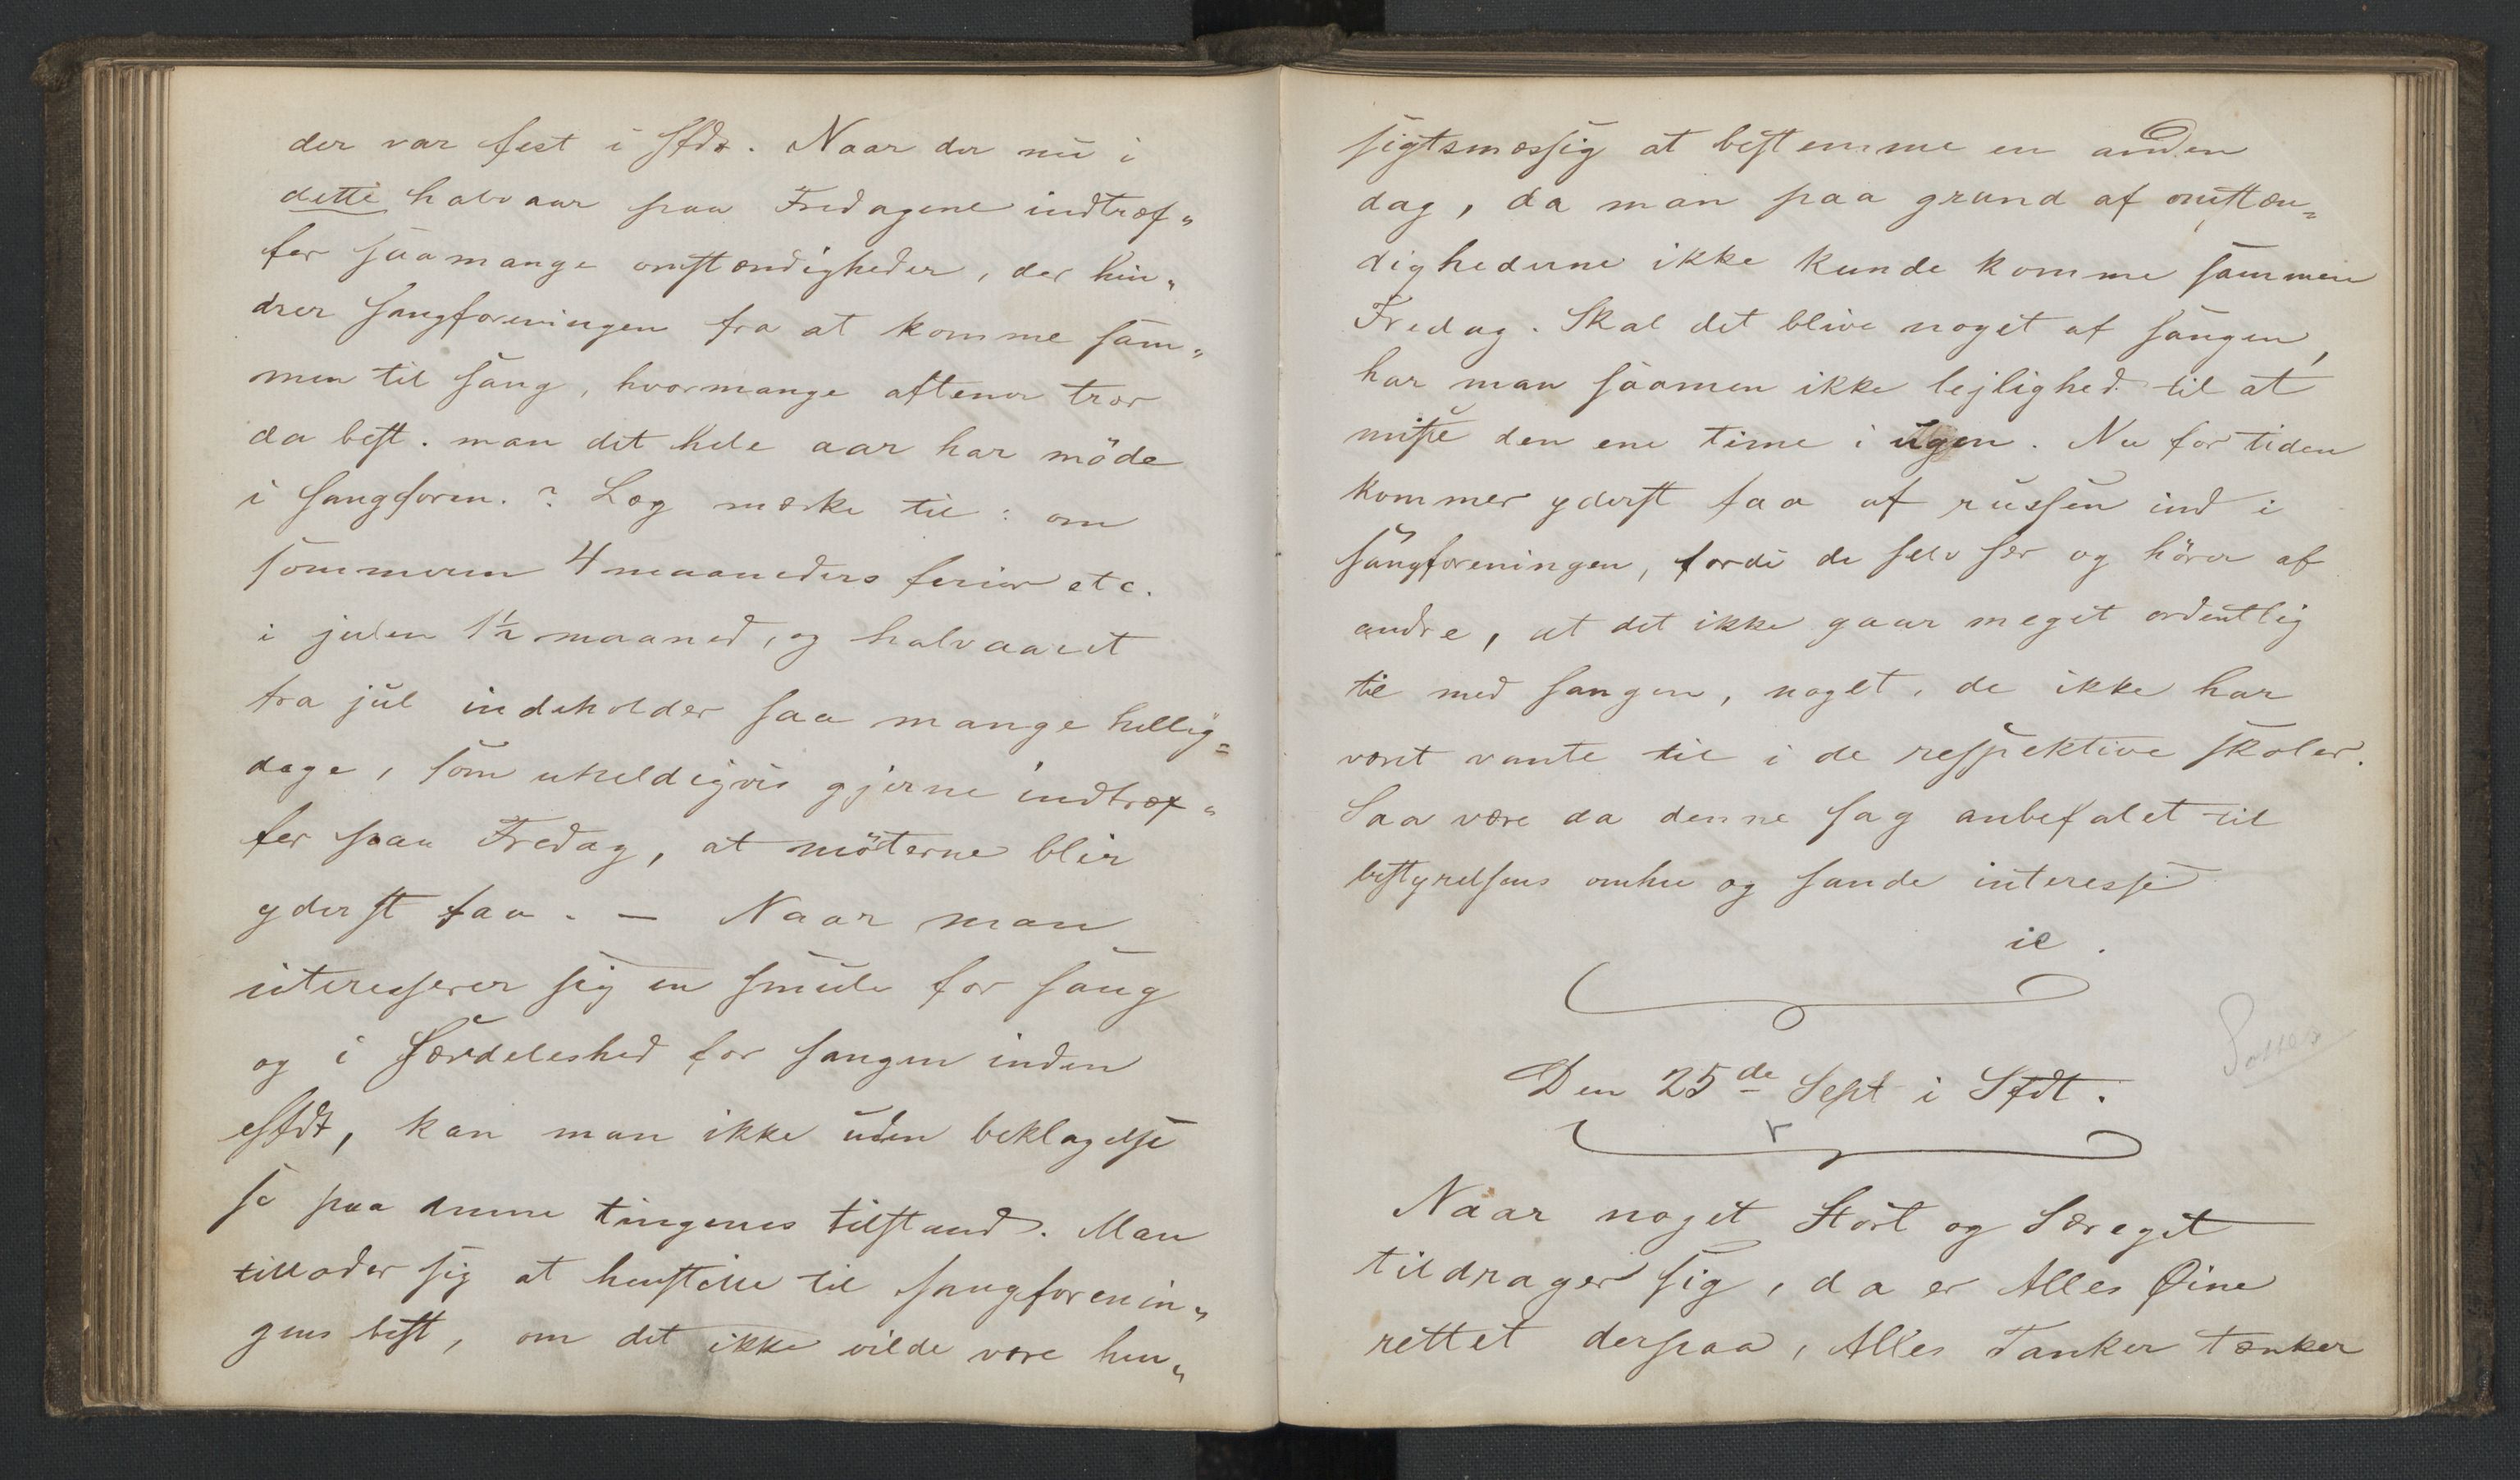 der var fest i Sfdt. Naar der nu i
dette halvaar paa Fredagene indtræf„
fer saamange omstændigheder, der hin„
drer sangforeningen fra at komme sam„
men til sang, hvormange aftener tror
da best. man det hele aar har möde
i sangforen.? Læg mærke til: om
sommeren 4 maaneders ferier etc.
i julen 1½ maaned, og halvaaret
fra jul indeholder saa mange hellig=
dage, som uheldigvis gjerne indtræf„
fer paa Fredag, at möterne blir
yderst faa. — Naar man
interesserer sig en smule for sang
og i Særdeleshed for sangen inden
Sfdt, kan man ikke uden beklagelse
se paa denne tingenes tilstand. Man
tillader sig at henstille til sangforenin„
gens best, om det ikke vilde være hen„
sigtsmæssig at bestemme en anden
dag, da man paa grund af omstæn=
dighederne ikke kunde komme sammen
Fredag. Skal det blive noget af sangen,
har man saamen ikke lejlighed til at
miste den ene time i ugen. Nu for tiden
kommer yderst faa af russen ind i
sangforeningen, fordi de selv ser og hörer af
andre, at det ikke gaar meget ordentlig
til med sangen, noget, de ikke har
været vante til i de respektive skoler.
Saa være da denne sag anbefalet til
bestyrelsens omhu og sande interesse
ie.
Den 25de Sept i Sfdt.
Naar noget Stort og Særeget
tildrager sig, da er Alles Øine
rettet derpaa, Alles Tanker tænker